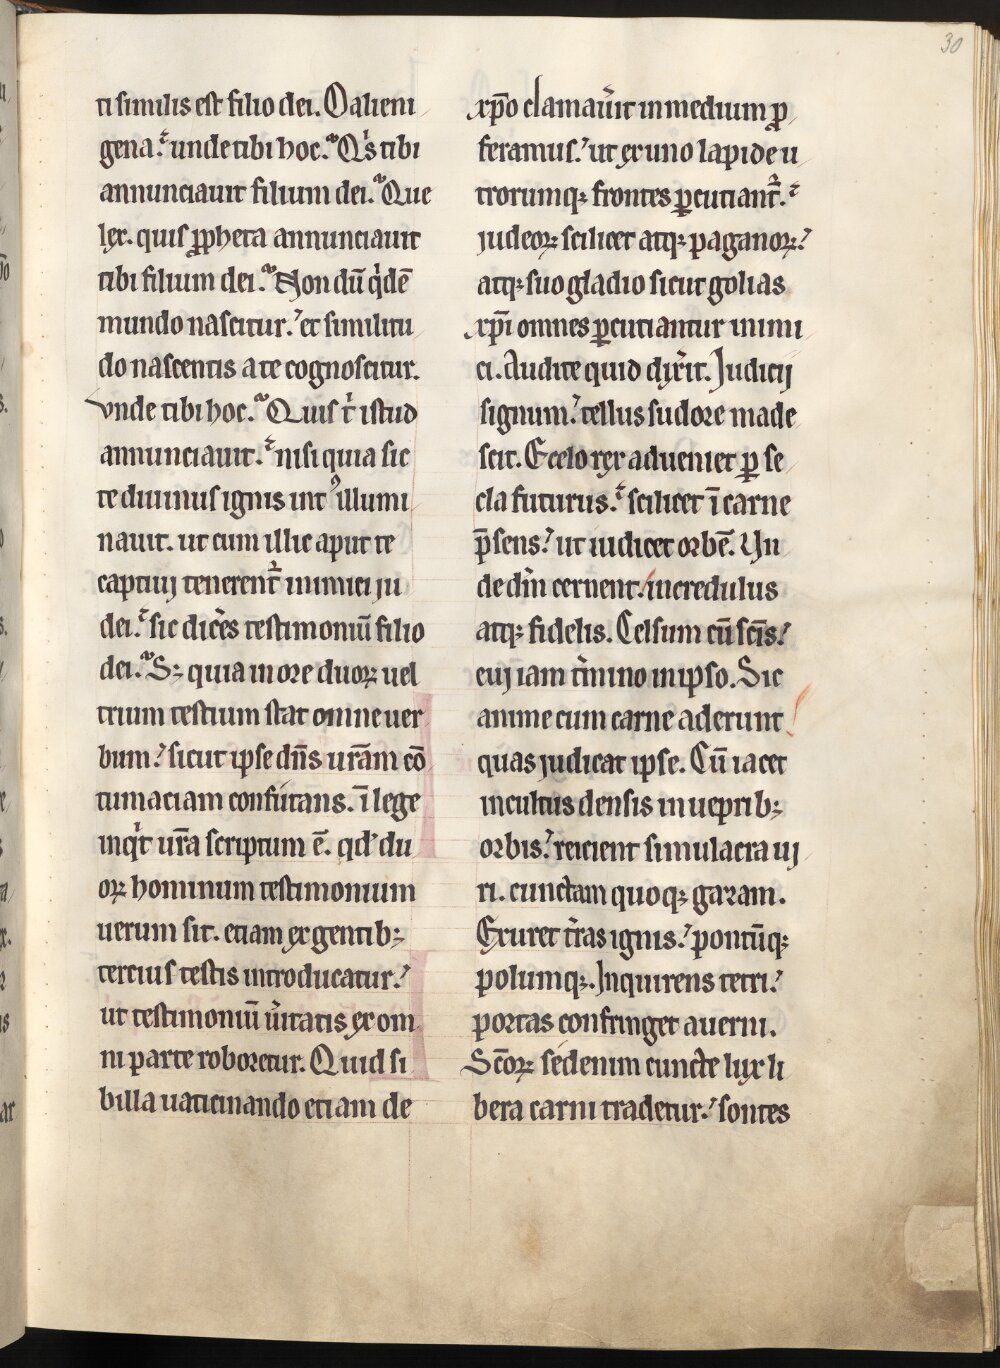 30
ti similis est filio dei. O alieni
gena? unde tibi hoc. Qͥs tibi
annunciauit filium dei. Que
lex. quis ꝓpheta annunciauit
tibi filium dei. Non dū qͥdē
mundo nascitur. et similitu
do nascentis a te cognoscitur.
vnde tibi hoc. Quis tͥ istud
annunciauit. nisi quia sic
te diuinus ignis int᷒ illumi
nauit. ut cum illic aput te
captiuj tenerent᷑ inimici ju
dei. sic dic̄es testimoniū filio
dei. Sꝫ quia in ore duoꝝ uel
trium testium stat omne uer
bum? sicut ipse dn̄s ur̄am cō
tumaciam confutans. ī lege
inqͥt ur̄a scriptum ē. qd' du
oꝝ hominum testimonium
uerum sit. etiam ex gentibꝫ
tercius testis introducatur?
ut testimoniū u̾itatis ex om
ni parte roboretur. Quid si
billa uaticinando etiam de
xp̄o clamau̾it in medium ꝓ
feramus? ut ex uno lapide u
trorumqꝫ frontes ꝑcutiant᷑.
judeoꝝ scilicet atqꝫ paganoꝝ?
atqꝫ suo gladio sicut golias
xp̄i omnes ꝑcutiantur inimi
ci. Audite quid dix̾it. Judicij
signum? tellus sudore made
scit. E celo rex adueniet ꝑ se
cla futurus. scilicet ī carne
p̄sens? ut iudicet orbē. Vn
de dm̄ cernent incredulus
atqꝫ fidelis. Celsum cū sc̄is?
euj iam t̾mino in ipso. Sic
anime cum carne aderunt
quas judicat ipse. Cū iacet
incultus densis in ueprib;
orbis? reicient simulacra uj
ri. cunctam quoqꝫ gazam.
Exuret t̾ras ignis? pontūqꝫ
polumqꝫ. Inquirens tetri?
portas confringet auerni.
Sc̄oꝝ sed enim cuncte lux li
bera carni tradetur? sontes